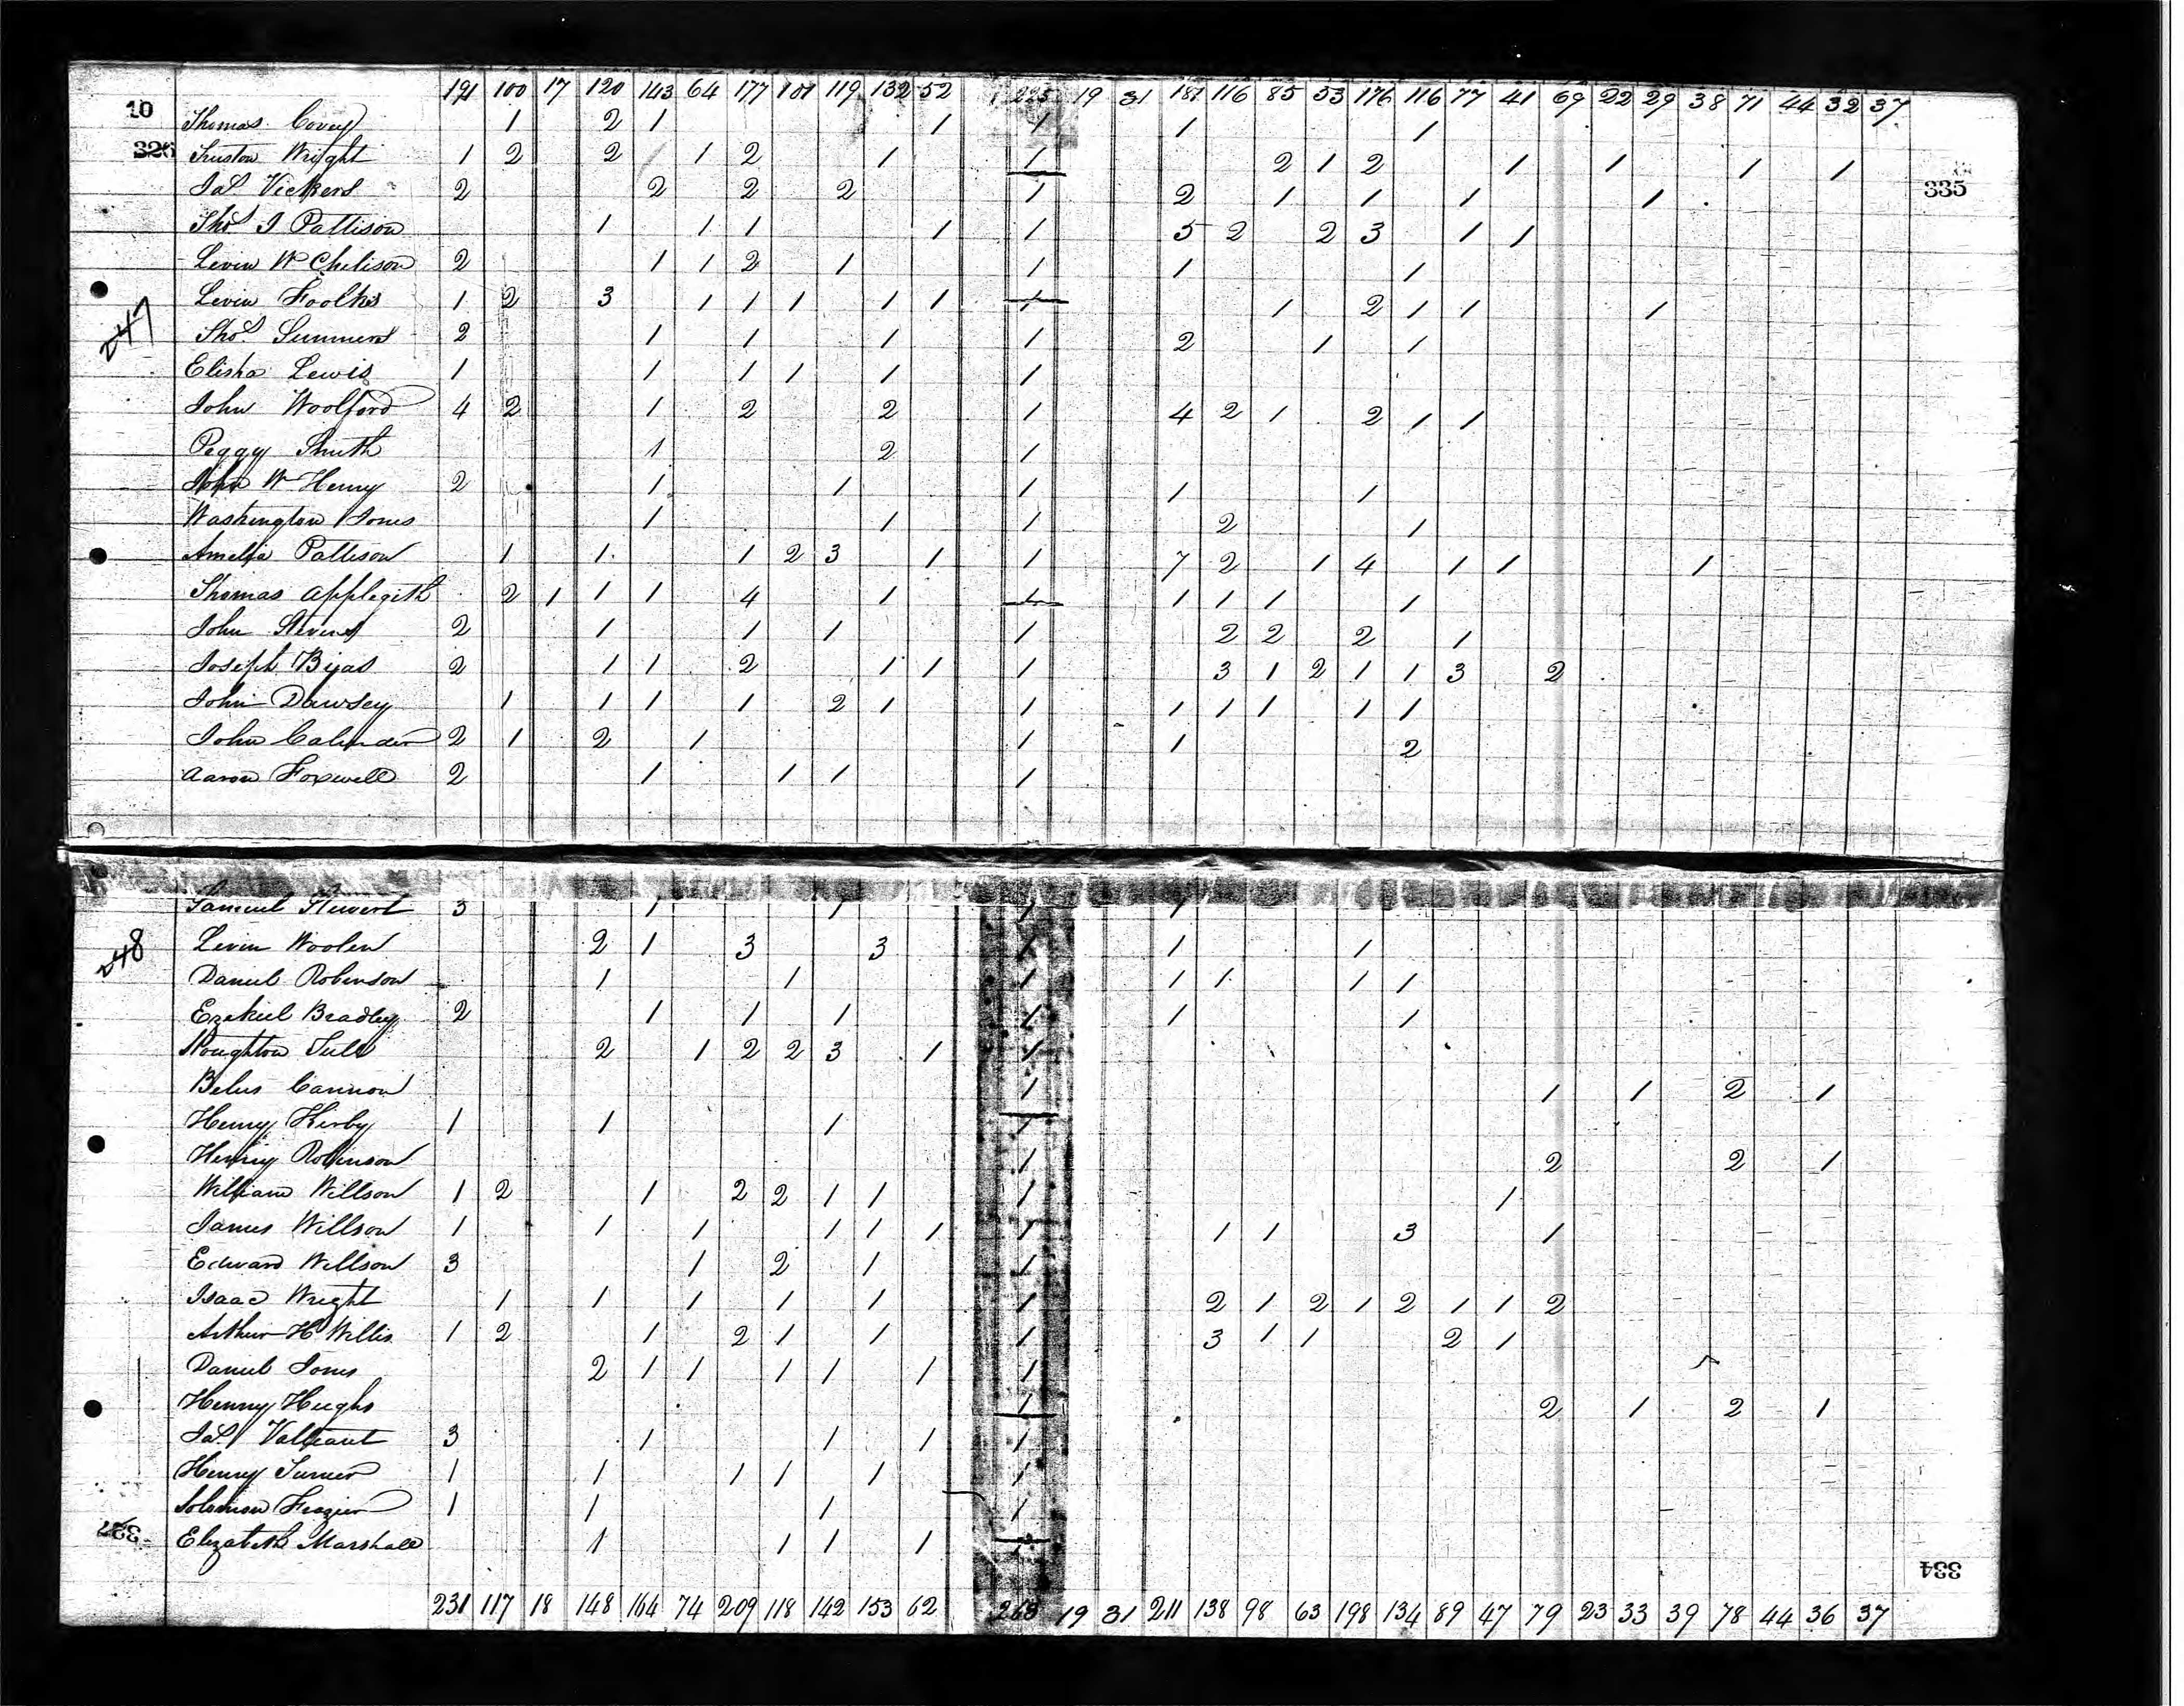 191 100 17 120 143 64 177 101 119 132 52 225 19 31 181 116 85 53 176 116 77 41 69 22 29 38 71 44 32 37
10 Thomas Covey 1 2 1 1 1 1 1
326 Truston Wright 1 2 2 1 2 1 1 2 1 2 1 1 1 1
Jas Vickers 2 2 2 2 1 2 1 1 1 1
335
Thos J Pattison 1 1 1 1 1 5 2 2 3 1 1
Levin W Chilison 2 1 1 2 1 1 1 1
Levin Foolks 1 2 3 1 1 1 1 1 1 1 2 1 1 1
247
Thos Summers 2 1 1 1 1 2 1 1
Elisha Lewis 1 1 1 1 1 1
John Woolford 4 2 1 2 2 1 4 2 1 2 1 1
Peggy Smith 1 2 1
John W Henry 2 1 1 1 1 1
Washington Jones 1 1 1 2 1
Amelia Pattison 1 1 1 2 3 1 1 7 2 1 4 1 1 1
Thomas Applegith 2 1 1 1 4 1 1 1 1 1 1
John Stevens 2 1 1 1 1 2 2 2 1
Joseph Bijas 2 1 1 2 1 1 1 3 1 2 1 1 3 2
John Dawsey 1 1 1 1 2 1 1 1 1 1 1 1
John Calender 2 1 2 1 1 1 2
Aaron Foxwell 2 1 1 1 1
Samuel Stewert 3 1 1 1 1
248 Levin Woolen 2 1 3 3 1 1 1
Daniel Robinson 1 1 1 1 1 1 1
Ezekiel Bradley 2 1 1 1 1 1 1
Houghton Tull 2 1 2 2 3 1 1
Belus Cannon 1 1 1 2 1
Henry Kirby 1 1 1 1
Henry Robinson 1 2 2 1
William Willson 1 2 1 2 2 1 1 1 1
James Willson 1 1 1 1 1 1 1 1 1 3 1
Edward Willson 3 1 2 1 1
Isaac Wright 1 1 1 1 1 1 2 1 2 1 2 1 1 2
Arthur H Willis 1 2 1 2 1 1 1 3 1 1 2 1
Daniel Jones 2 1 1 1 1 1 1
Henny Hughs 1 2 1 2 1
Jas Valliant 3 1 1 1 1
Henry Turner 1 1 1 1 1 1
Solomon Frazier 1 1 1 1
337
Elizabeth Marshall 1 1 1 1 1
334
231 117 18 148 164 74 209 118 142 153 62 263 19 31 211 138 98 63 198 134 89 47 79 23 33 39 78 44 36 37